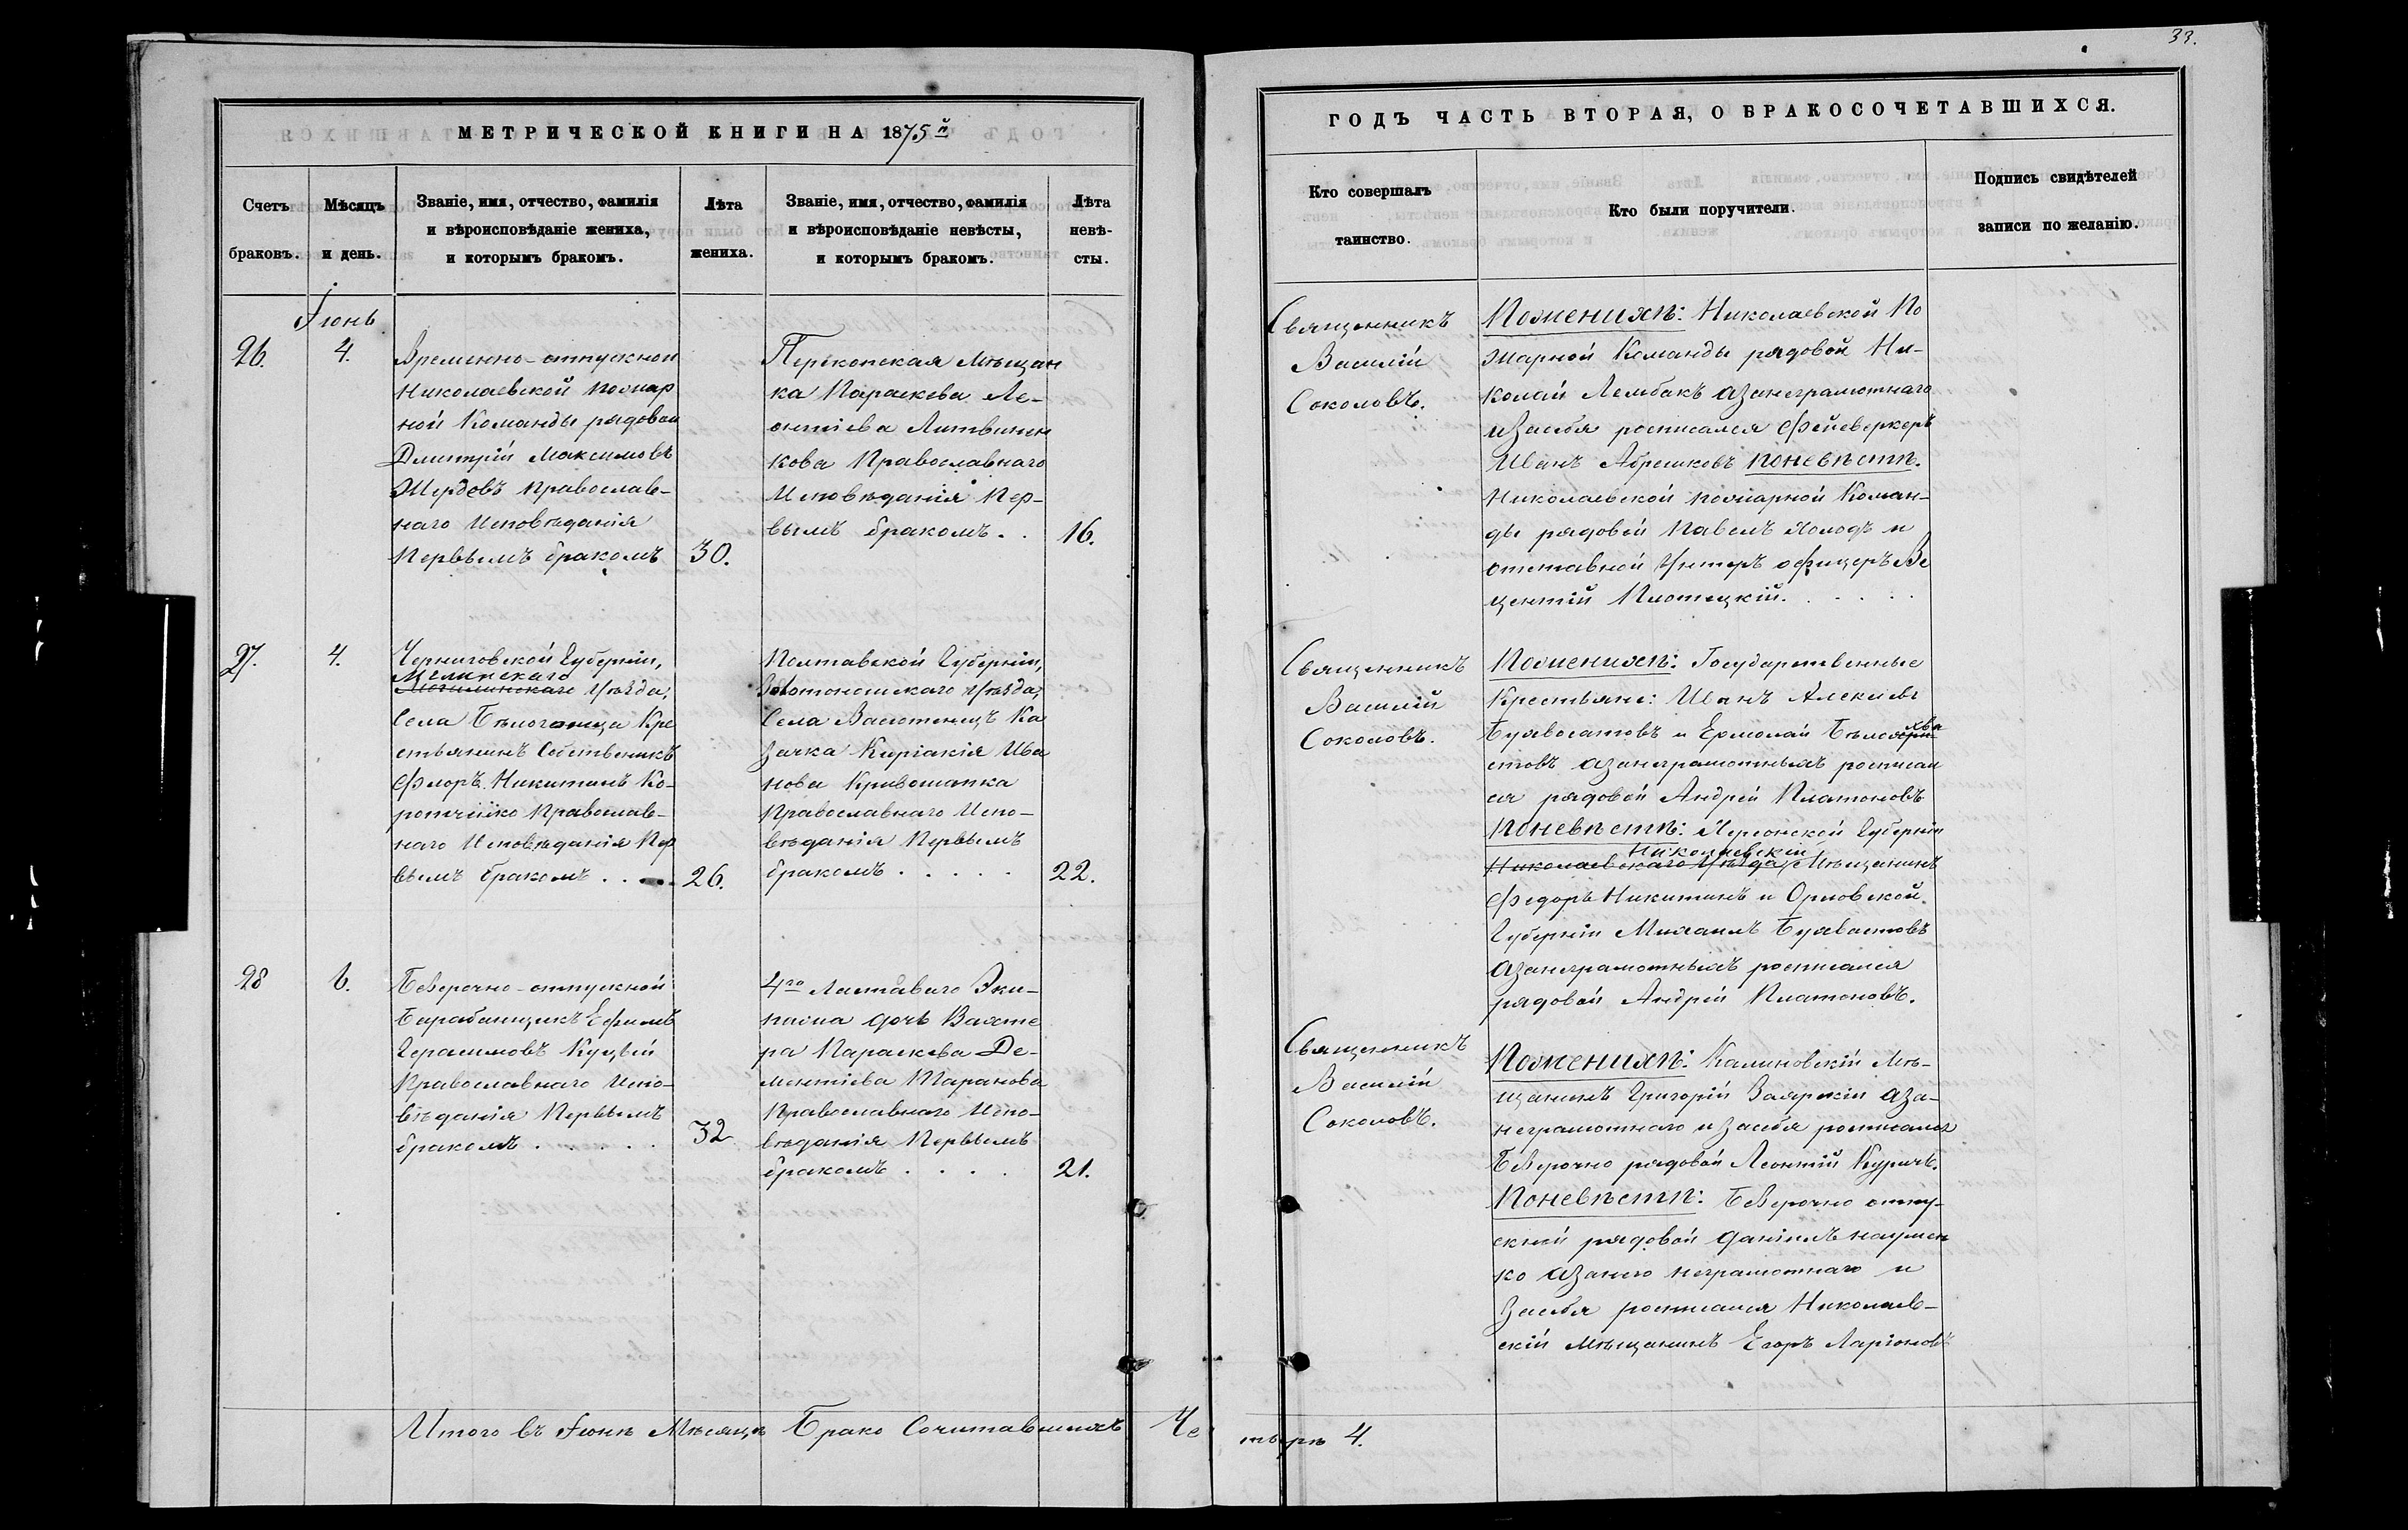 33.
МЕТРИЧЕСКОЙ КНИГИ НА 1875й
Счетъ
браковъ.
Мѣсяцъ
и день.
Званіе, имя, отчество, фамилія
и вѣроисповѣданіе жениха,
и которымъ бракомъ.
Лѣта
жениха.
Званіе, имя, отчество, фамилія
и вѣроисповѣданіе невѣсты,
и которымъ бракомъ.
Лѣта
невѣ-
сты.
Іюнь
26.
4.
Временно-отпускной
Николаевской пожар
ной Команды рядовой
Дмитрій Максимовъ
Жердевъ православ-
наго Исповѣданія
Первымъ бракомъ
30.
Перекопская Мѣщан
ка Параскева Ле-
онтіева Литвинен
кова Православнаго
Исповѣданія Пер-
вымъ бракомъ. .
16.
27.
4.
Черниговской Губерніи,
Мглинскаго
Уѣзда,
Села Бѣлогоща Кре
стьянинъ Собственикъ
Флоръ Никитинъ Ко-
Православ-
наго Исповѣданія Пер
вымъ бракомъ . . .
26.
Полтавской Губерніи,
Золотоношскаго Уѣзда,
Села Васютенцъ Ка
зачка Киріакія Ива
нова Кривошапка
Православнаго Испо-
вѣданія Первымъ
бракомъ . . . . .
22.
28
6.
Безсрочно-отпускной
Барабанщикъ Ефимъ
Герасимовъ Куцый
Православнаго Испо-
вѣданія Первымъ
бракомъ . . . . .
32
4го Ластаваго Эки-
пажа дочь Вахте
ра Параскева Де-
ментіева Таранова
Православнаго Испо-
вѣданія Первымъ
бракомъ . . . .
21.
Итого въ Іюнѣ Мѣсяцѣ Брако Сочитавшихъ Че
ГОДЪ ЧАСТЬ ВТОРАЯ, О БРАКОСОЧЕТАВШИХСЯ.
Кто совершалъ
таинство.
Кто были поручители.
Подпись свидѣтелей
записи по желанію.
Священникъ
Василій
Соколовъ.
Поженихѣ: Николаевской По
жарной Команды рядовой Ни-
колай Лембакъ азанеграмотнаго
изасебя росписался Фейеверкеръ
Иванъ Абрашковъ поневѣстѣ.
Николаевской пожарной Коман-
ды рядовой Павелъ Холодъ и
отставной Унтеръ офицеръ Ви
центій Плотецкій. . . . . .
Священникъ
Василій
Соколовъ.
Поженихѣ: Государственные
Крестьяне: Иванъ Алексѣевъ
Бухвостовъ и Ермолай Бѣло
хво
стовъ азанеграмотныхъ росписал
ся рядовой Андрей Платоновъ
Поневѣстѣ: Херсонской Губерніи
Николаевскій
Николаевскаго Уѣзда, Мѣщанинъ
Федоръ Никитинъ и Орловской
Губерніи Михаилъ Бухвостовъ
азанеграмотныхъ росписался
рядовой Андрей Платоновъ.
Священникъ
Василій
Соколовъ.
Поженихѣ: Калиновскій Мѣ-
щанинъ Григорій Заярскій аза-
неграмотнаго и засебя росписался
Безсрочно рядовой Леонтій Куричъ.
Поневѣстѣ: Безсрочно отпу-
скной рядовой Даніилъ Наумен
ко азанего неграмотнаго и
засебя росписался Николаев-
скій мѣщанинъ Егоръ Ларіоновъ
тырѣ 4.